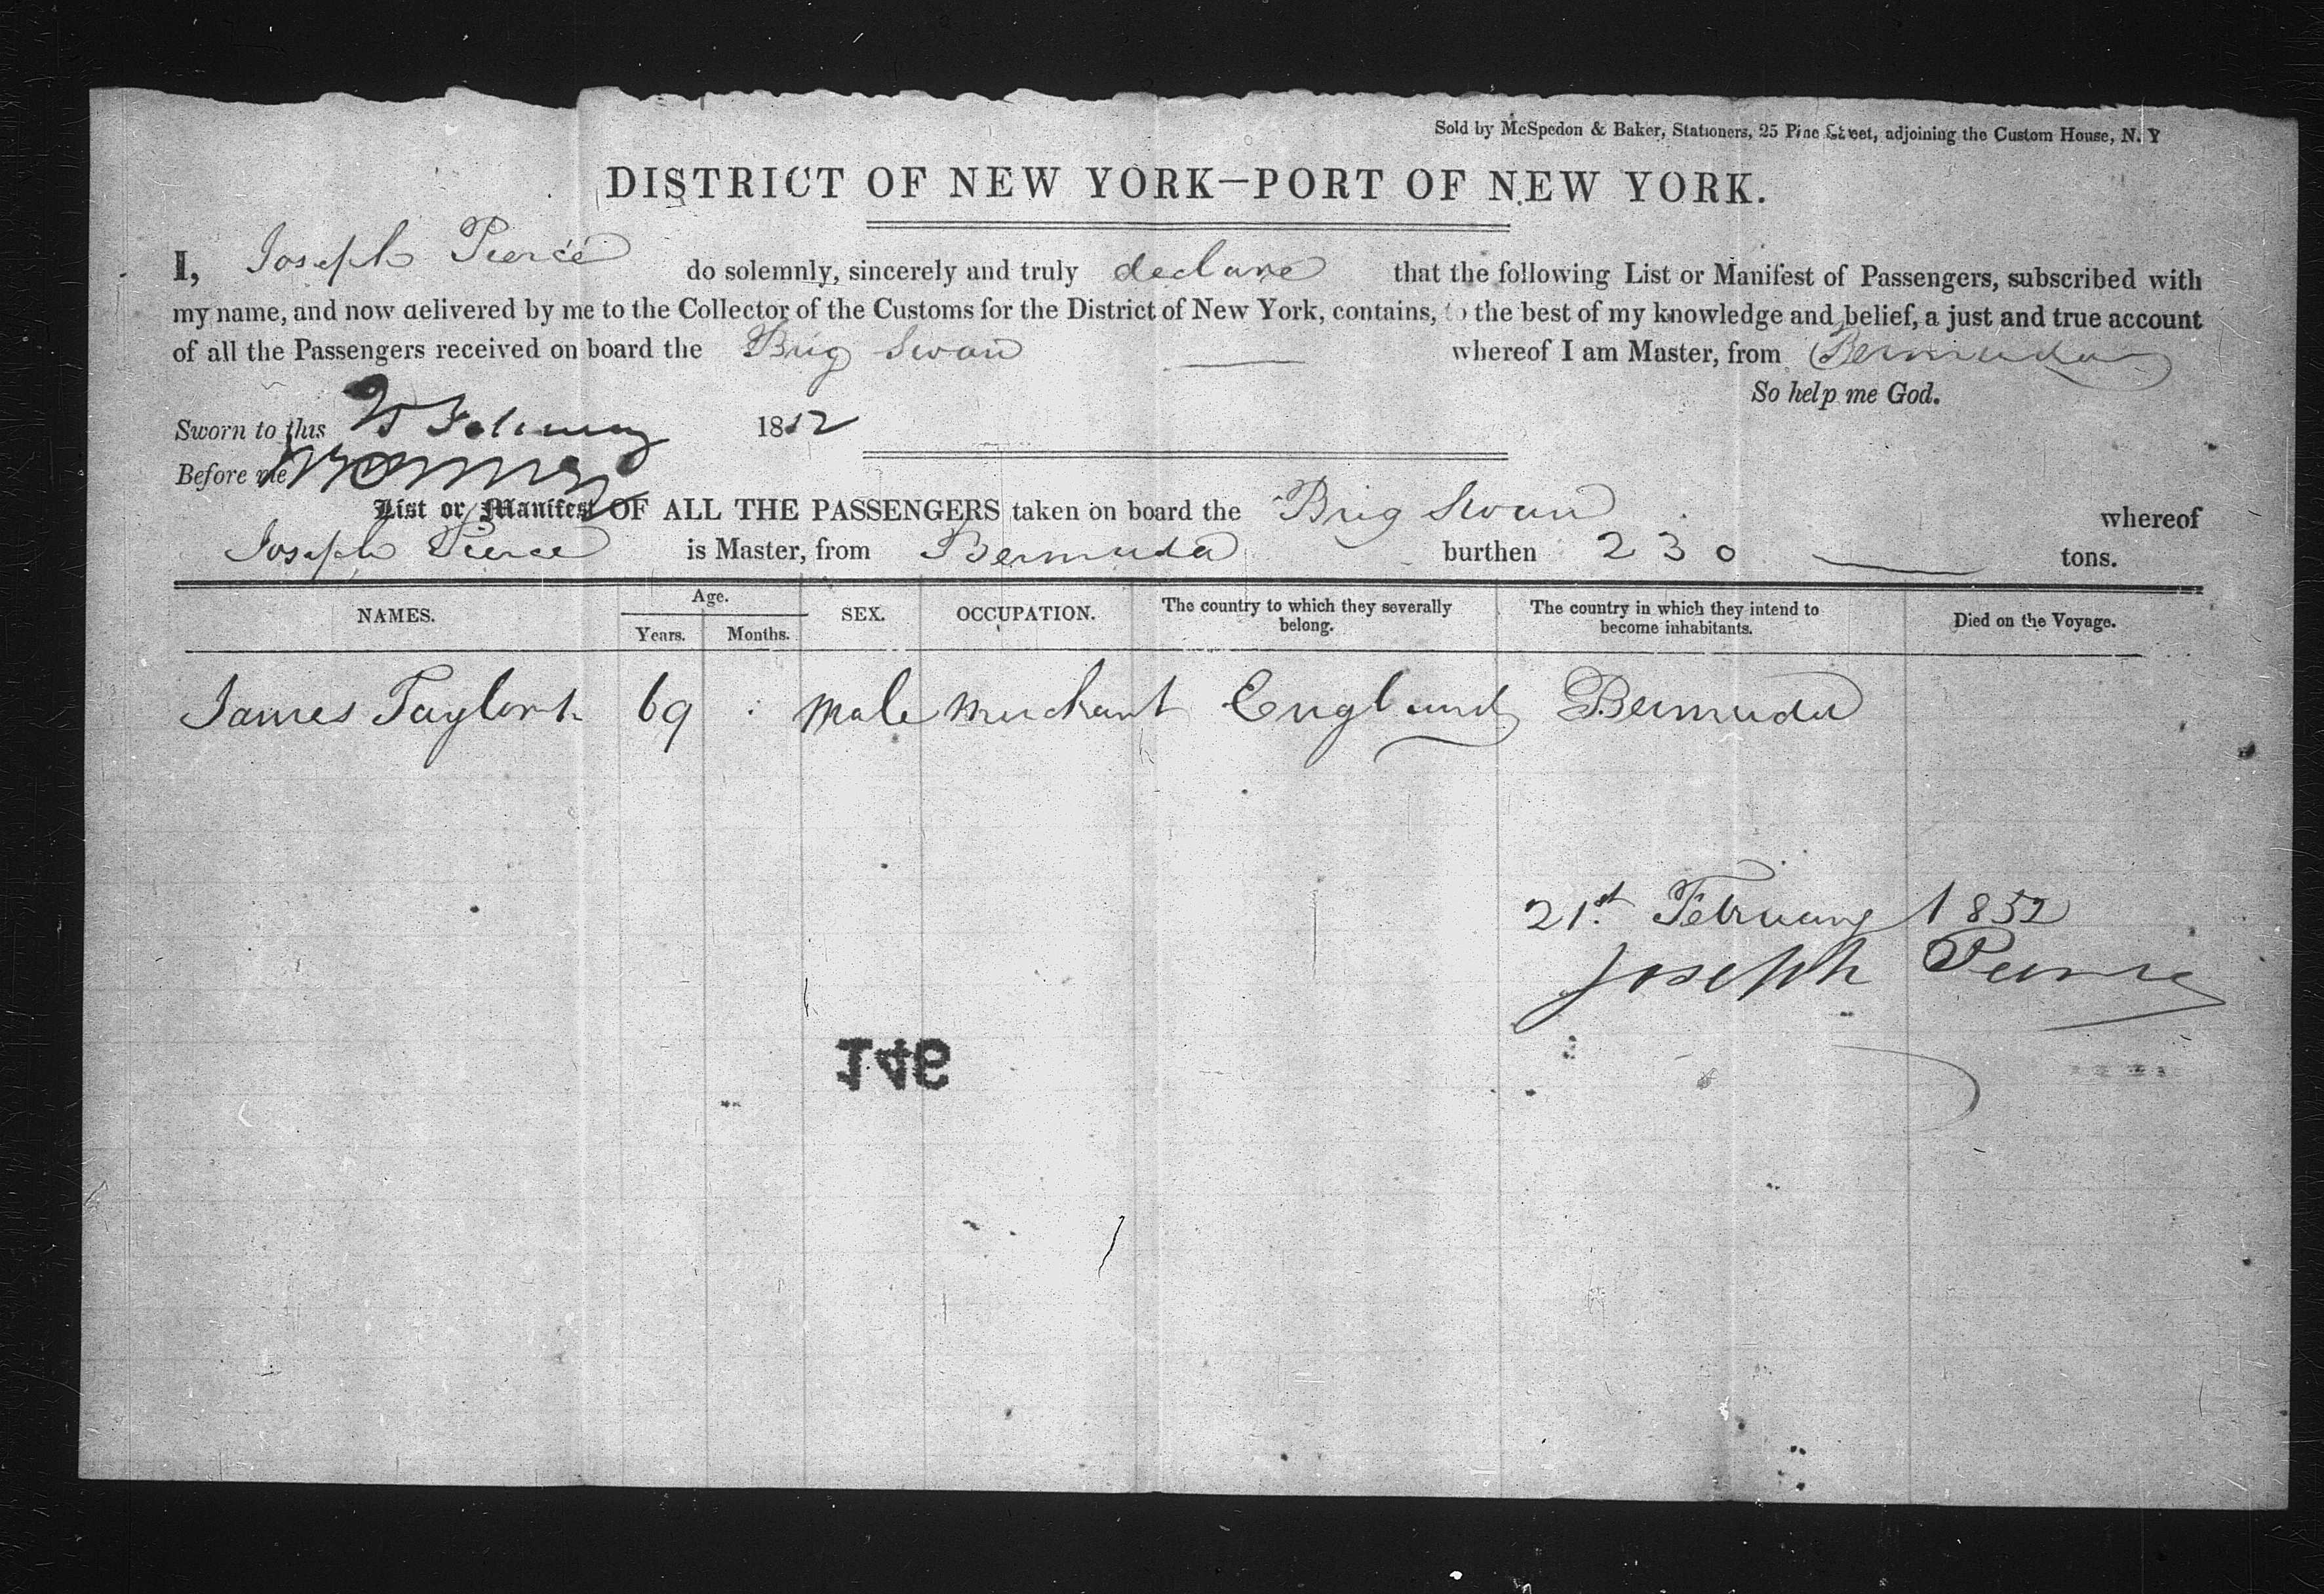 Sold by McSpedon & Baker, Stationers, 25 Pine Street, adjoining the Custom House, N. Y
DISTRICT OF NEW YORK—PORT OF NEW YORK.
I, Joseph Pierce do solemnly, sincerely and truly declare that the following List or Manifest of Passengers, subscribed with
my name, and now delivered by me to the Collector of the Customs for the District of New York, contains, to the best of my knowledge and belief, a just and true account
of all the Passengers received on board the Brig Swan whereof I am Master, from Bermuda
So help me God.
Sworn to this February 1852
Before me
List or Manifest OF ALL THE PASSENGERS taken on board the Brig Swan whereof
Joseph Pierce is Master, from Bermuda burthen 230 tons.
NAMES. Age. Years. Months. SEX. OCCUPATION. The country to which they severally belong. The country in which they intend to become inhabitants. Died on the Voyage.
James 69 male merchant England Bermuda
21st February 1852
Joseph Pierce
146